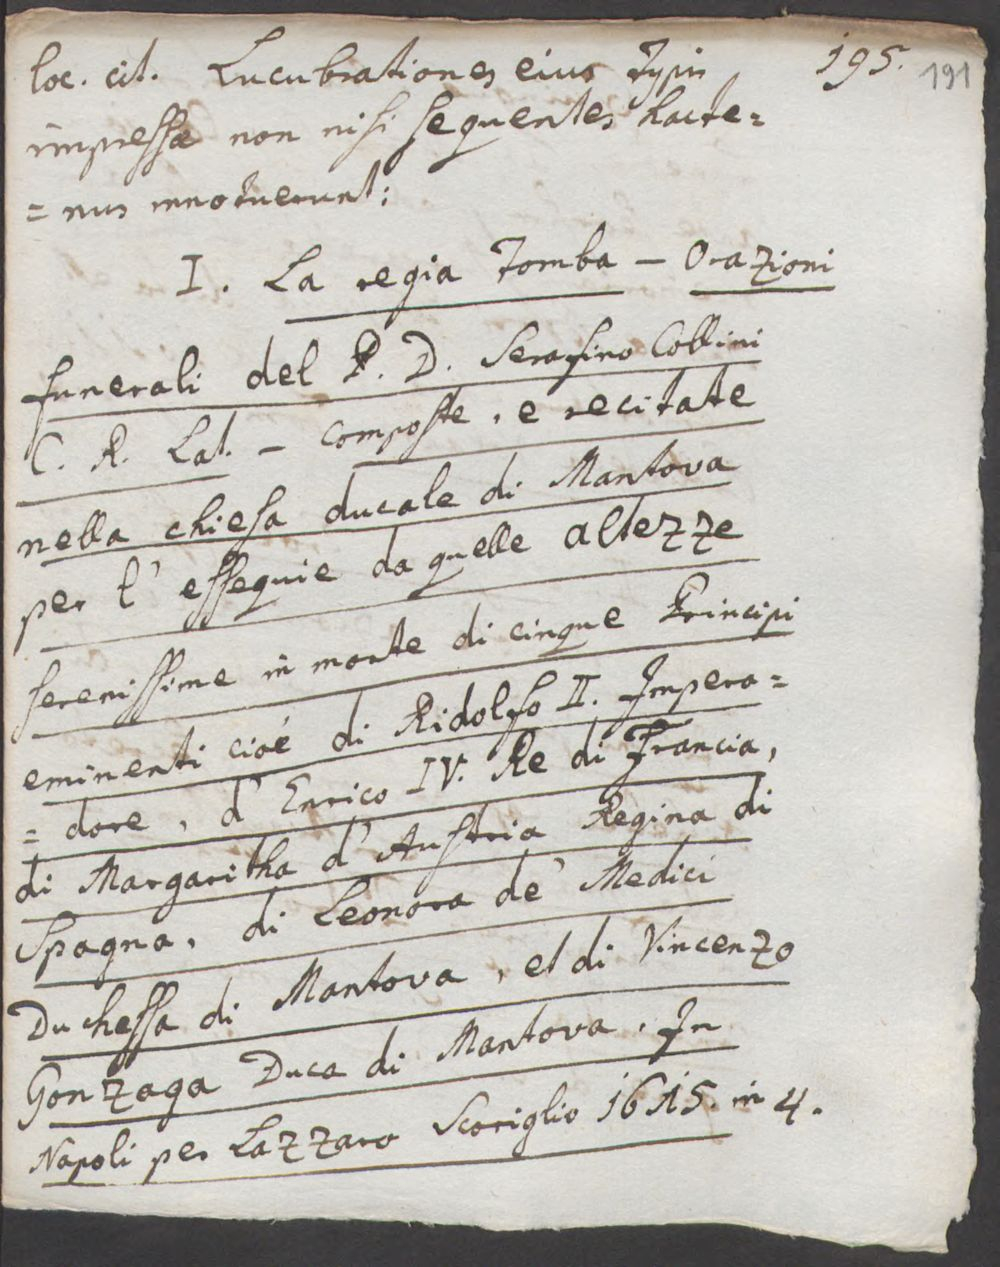 195. 191
loc. cit. Lucubrationes eius typis
impressæ non nisi sequentes hacte=
=nus innotuerunt:
I. La regia tomba — Orazioni
funerali del P. D. Serafino Collini
C. R. Lat. — composte, e recitate
nella chiesa ducale di Mantova
per l' essequie da quelle altezze
serenissime in morte di cinque Principi
eminenti cioè di Ridolfo II. Impera=
=dore, d' Enrico IV. Re di Francia,
di Margaritha d' Austria Regina di
Spagna, di Leonora de' Medici
Duchessa di Mantova, et di Vincenzo
Gonzaga Duca di Mantova. In
Napoli per Lazzaro Scoriglio 1615. in 4.